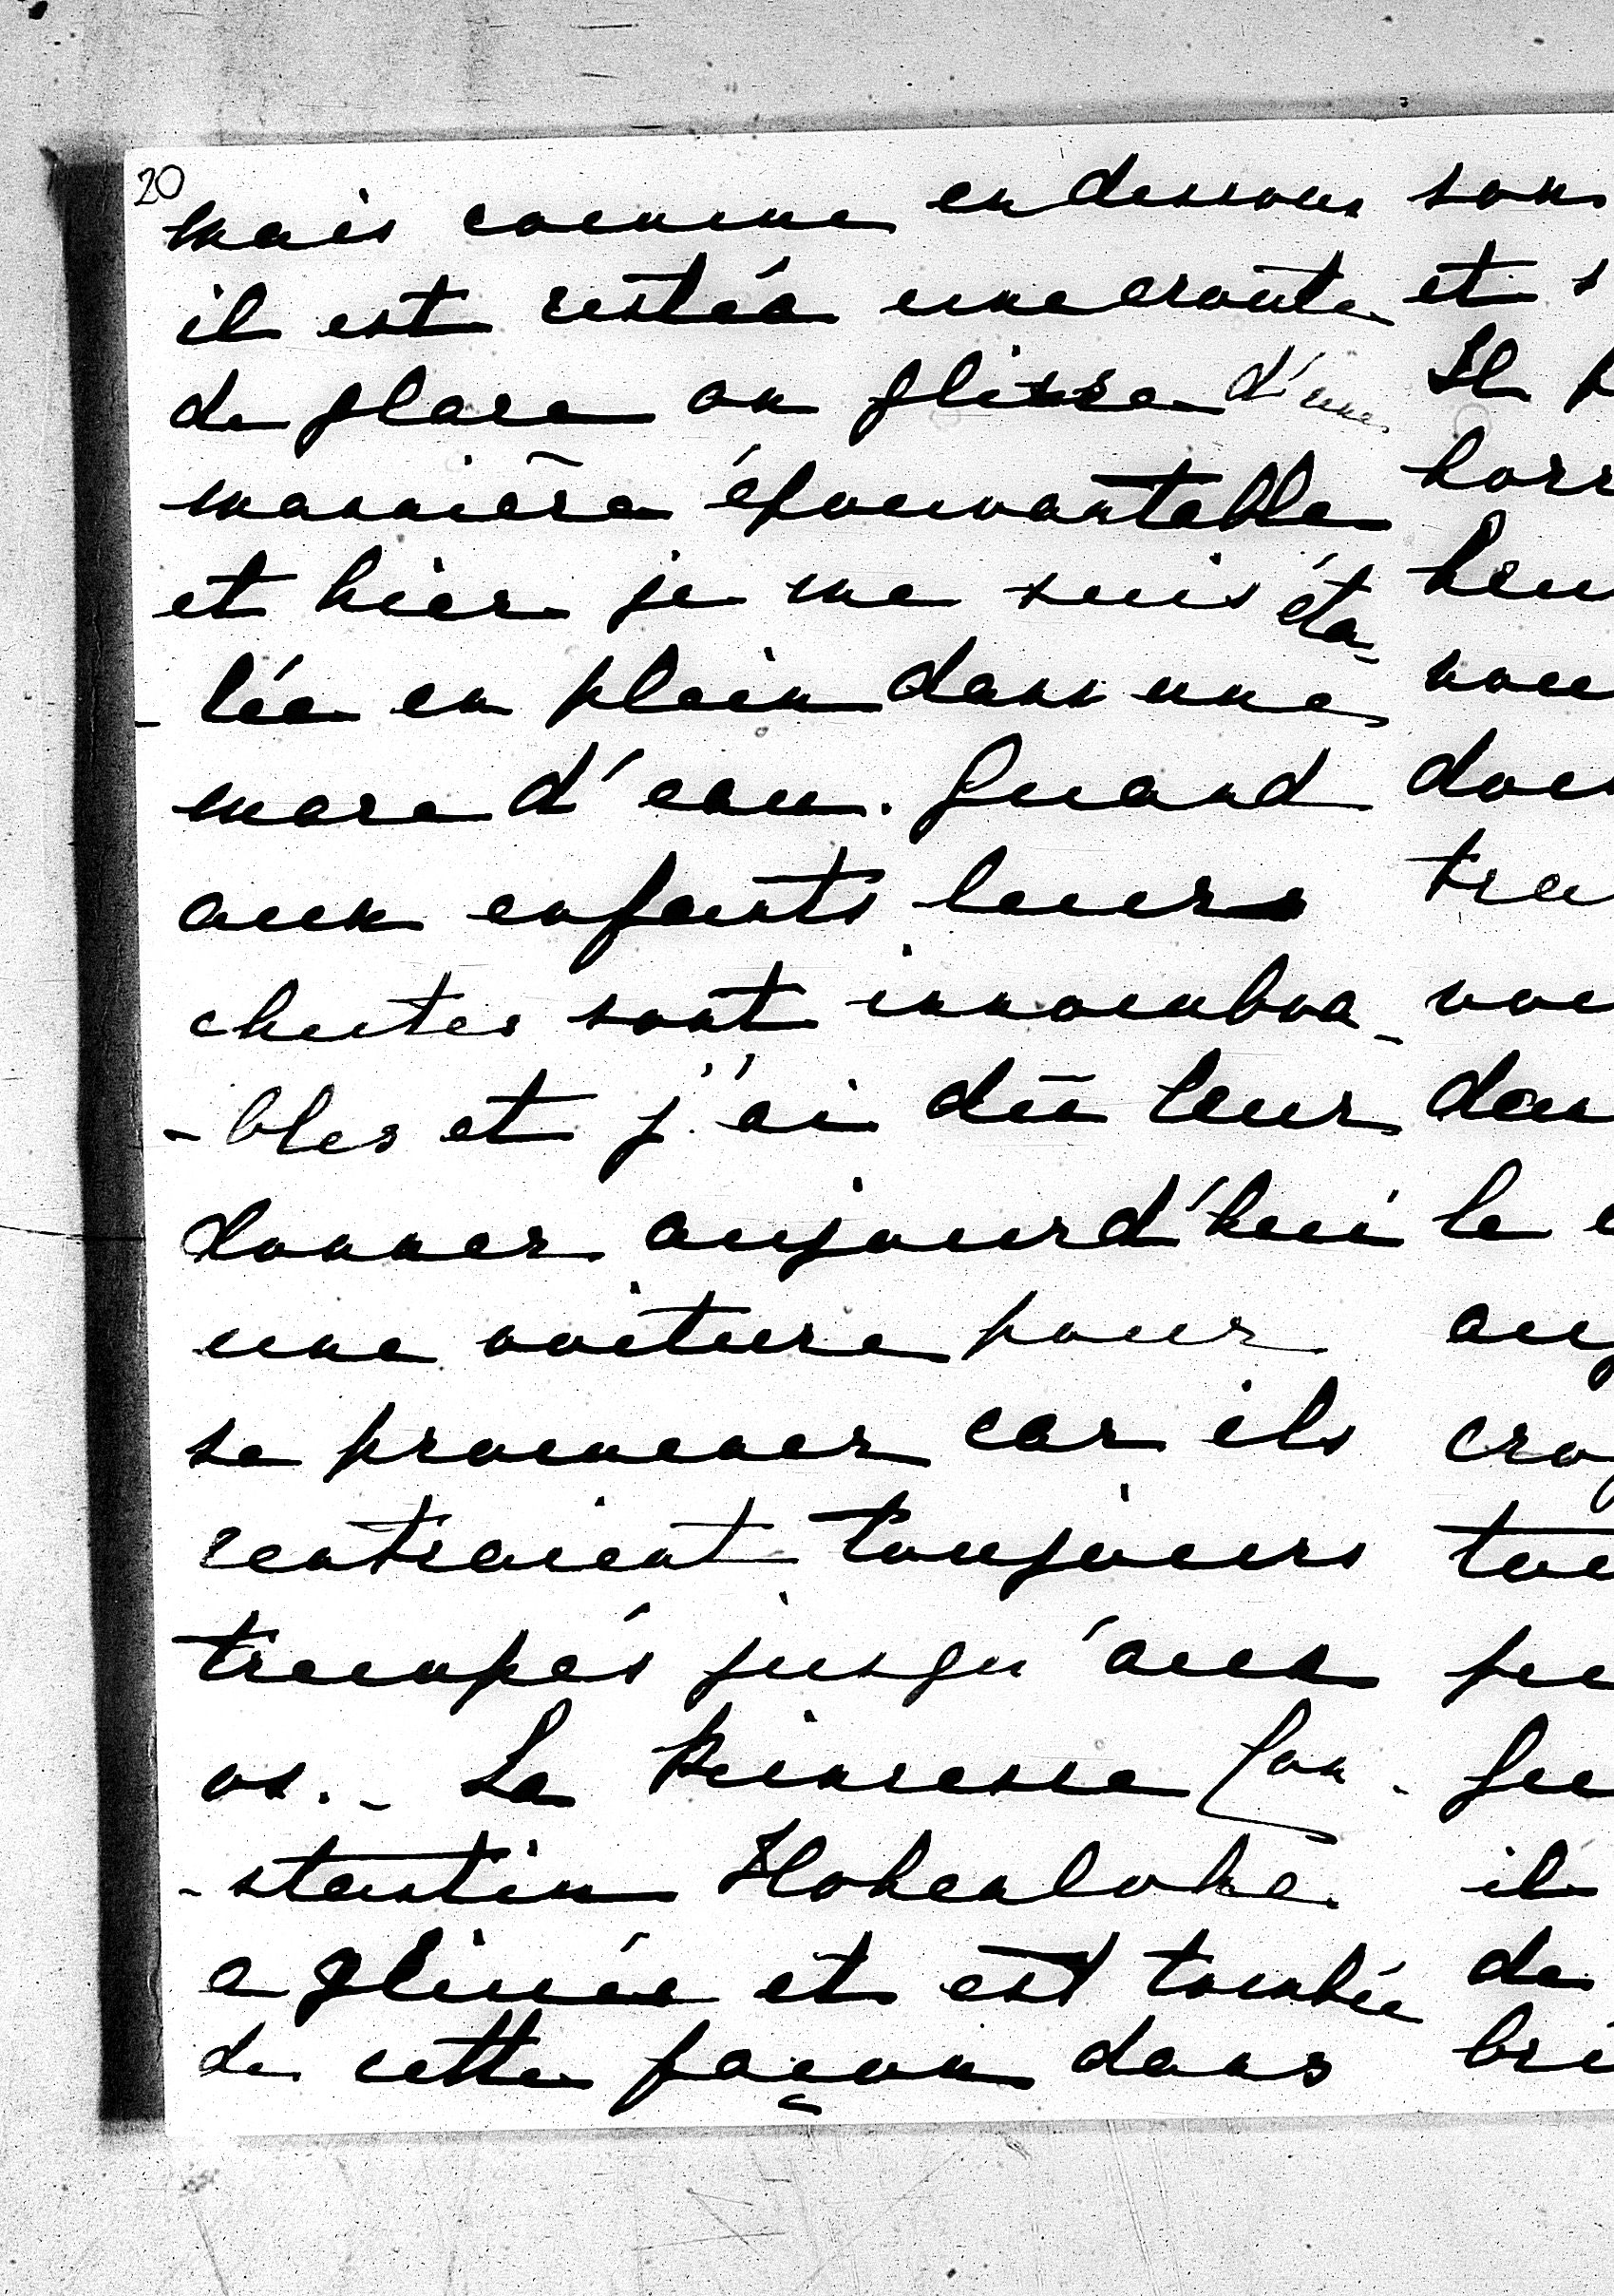 20
mais comme en dessous
il est restée une croute
de glace on glisse d'une
mannière épouvantable
et hier je me suis éta-
-lée en plein dans une
mare d'eau. Quand
aux enfants leurs
chutes sont innombra-
-bles et j'ai dū leur
donner aujourd'hui
une voiture pour
se promener car ils
rentraient toujours
trempés jusqu'aux
os. - La Princesse Con-
-stantin Hohenlohe
a glissée et est tombée
de cette façon dans
son
et
Il
le
il
de